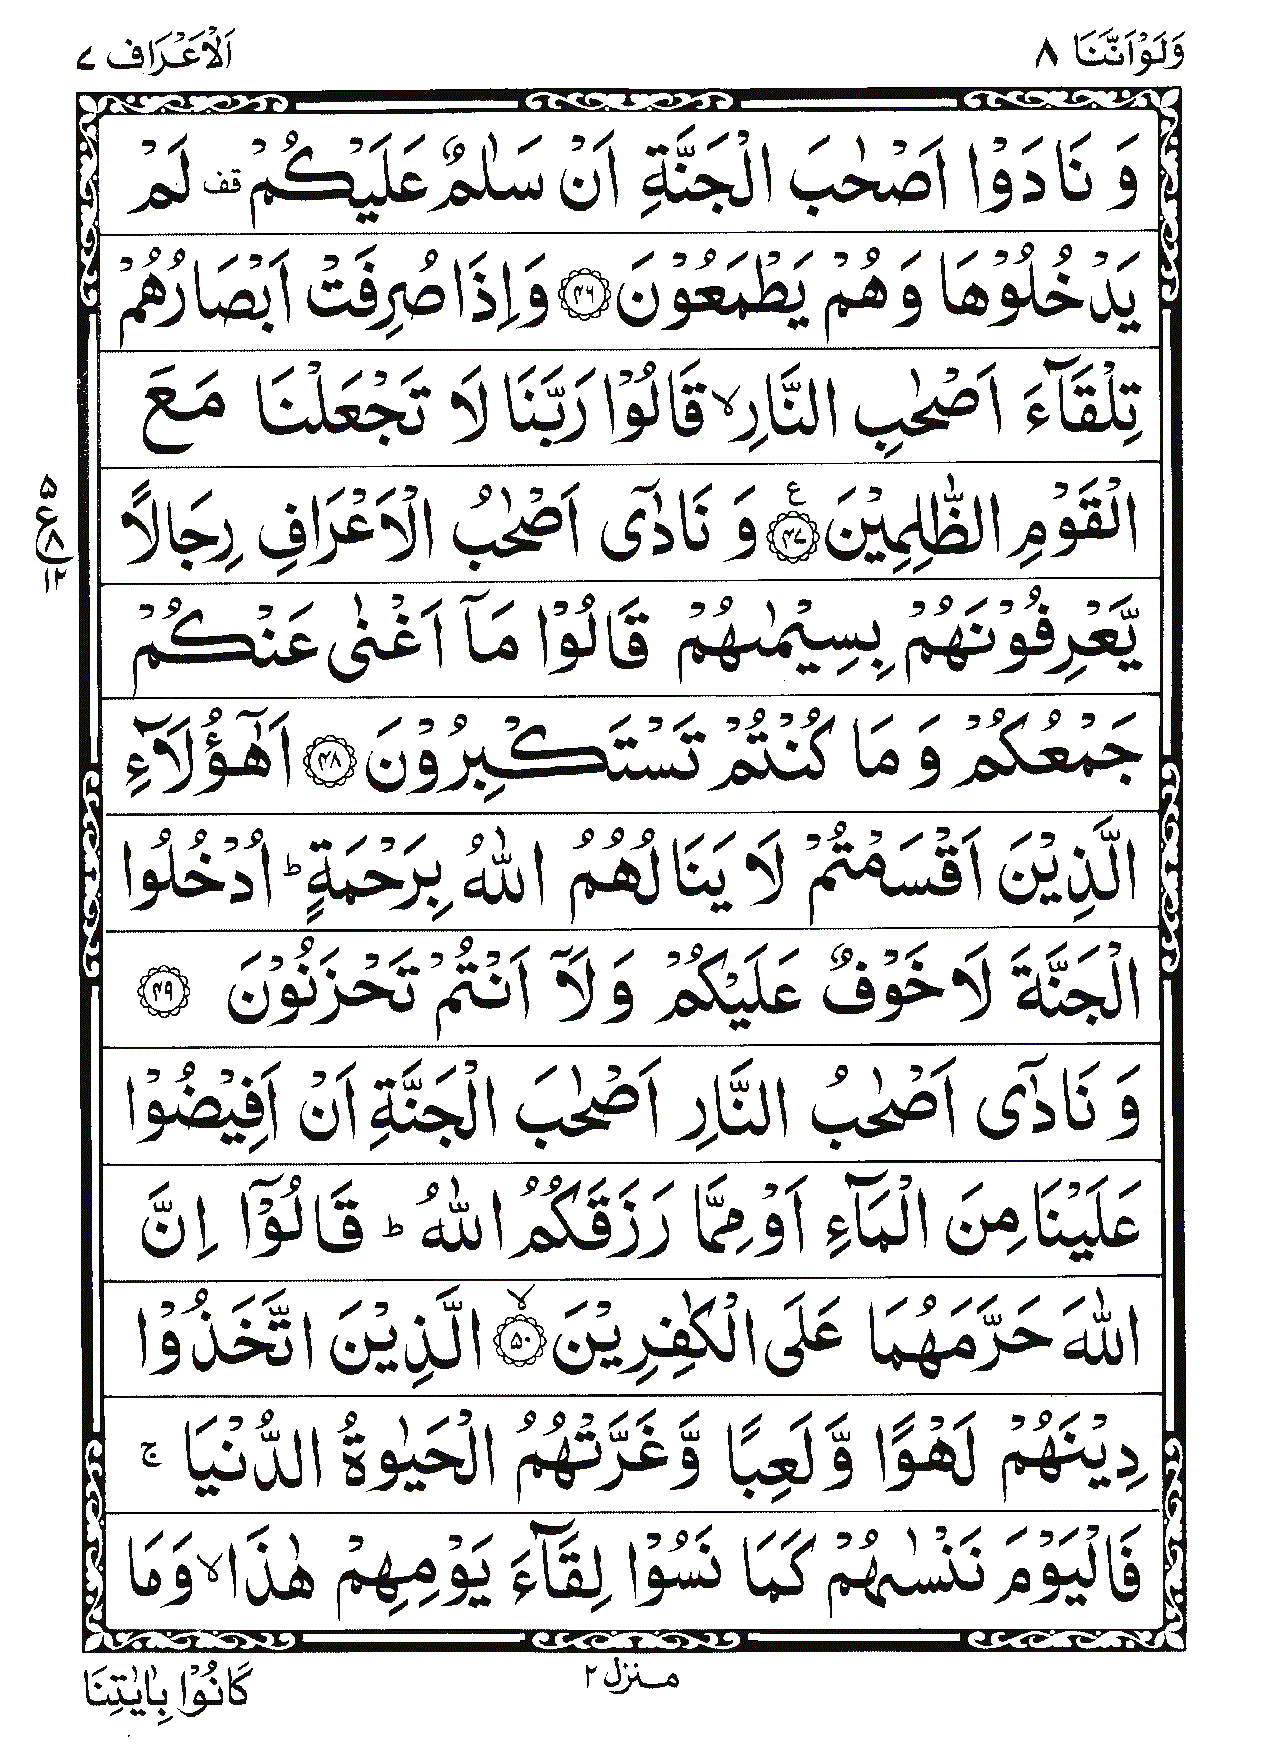 وَلَوْاَنَّنَا ٨
اَلْاَعْرَاف ٧
وَ نَادَوْا اَصْحٰبَ الْجَنَّةِ اَنْ سَلٰمٌ عَلَيْكُمْ قف لَمْ
يَدْخُلُوْهَا وَ هُمْ يَطْمَعُوْنَ ﴿۴۶﴾ وَاِذَا صُرِفَتْ اَبْصَارُهُمْ
تِلْقَآءَ اَصْحٰبِ النَّارِ ۙ قَالُوْا رَبَّنَا لَا تَجْعَلْنَا مَعَ
الْقَوْمِ الظّٰلِمِيْنَ ﴿۴۷﴾ ع وَ نَادٰۤى اَصْحٰبُ الْاَعْرَافِ رِجَالًا
۵
ع ٨
١٢
يَّعْرِفُوْنَهُمْ بِسِيْمٰىهُمْ قَالُوْا مَاۤ اَغْنٰى عَنْكُمْ
جَمْعُكُمْ وَ مَا كُنْتُمْ تَسْتَكْبِرُوْنَ ﴿۴۸﴾ اَهٰۤؤُلَآءِ
الَّذِيْنَ اَقْسَمْتُمْ لَا يَنَالُهُمُ اللّٰهُ بِرَحْمَةٍ ؕ اُدْخُلُوا
الْجَنَّةَ لَا خَوْفٌ عَلَيْكُمْ وَ لَاۤ اَنْتُمْ تَحْزَنُوْنَ ﴿۴۹﴾
وَ نَادٰۤى اَصْحٰبُ النَّارِ اَصْحٰبَ الْجَنَّةِ اَنْ اَفِيْضُوْا
عَلَيْنَا مِنَ الْمَآءِ اَوْ مِمَّا رَزَقَكُمُ اللّٰهُ ؕ قَالُوْۤا اِنَّ
اللّٰهَ حَرَّمَهُمَا عَلَى الْكٰفِرِيْنَ ﴿۵۰﴾ ۙ الَّذِيْنَ اتَّخَذُوْا
دِيْنَهُمْ لَهْوًا وَّ لَعِبًا وَّ غَرَّتْهُمُ الْحَيٰوةُ الدُّنْيَا ۚ
فَالْيَوْمَ نَنْسٰىهُمْ كَمَا نَسُوْا لِقَآءَ يَوْمِهِمْ هٰذَا ۙ وَمَا
منزل ٢
كَانُوْا بِاٰيٰتِنَا